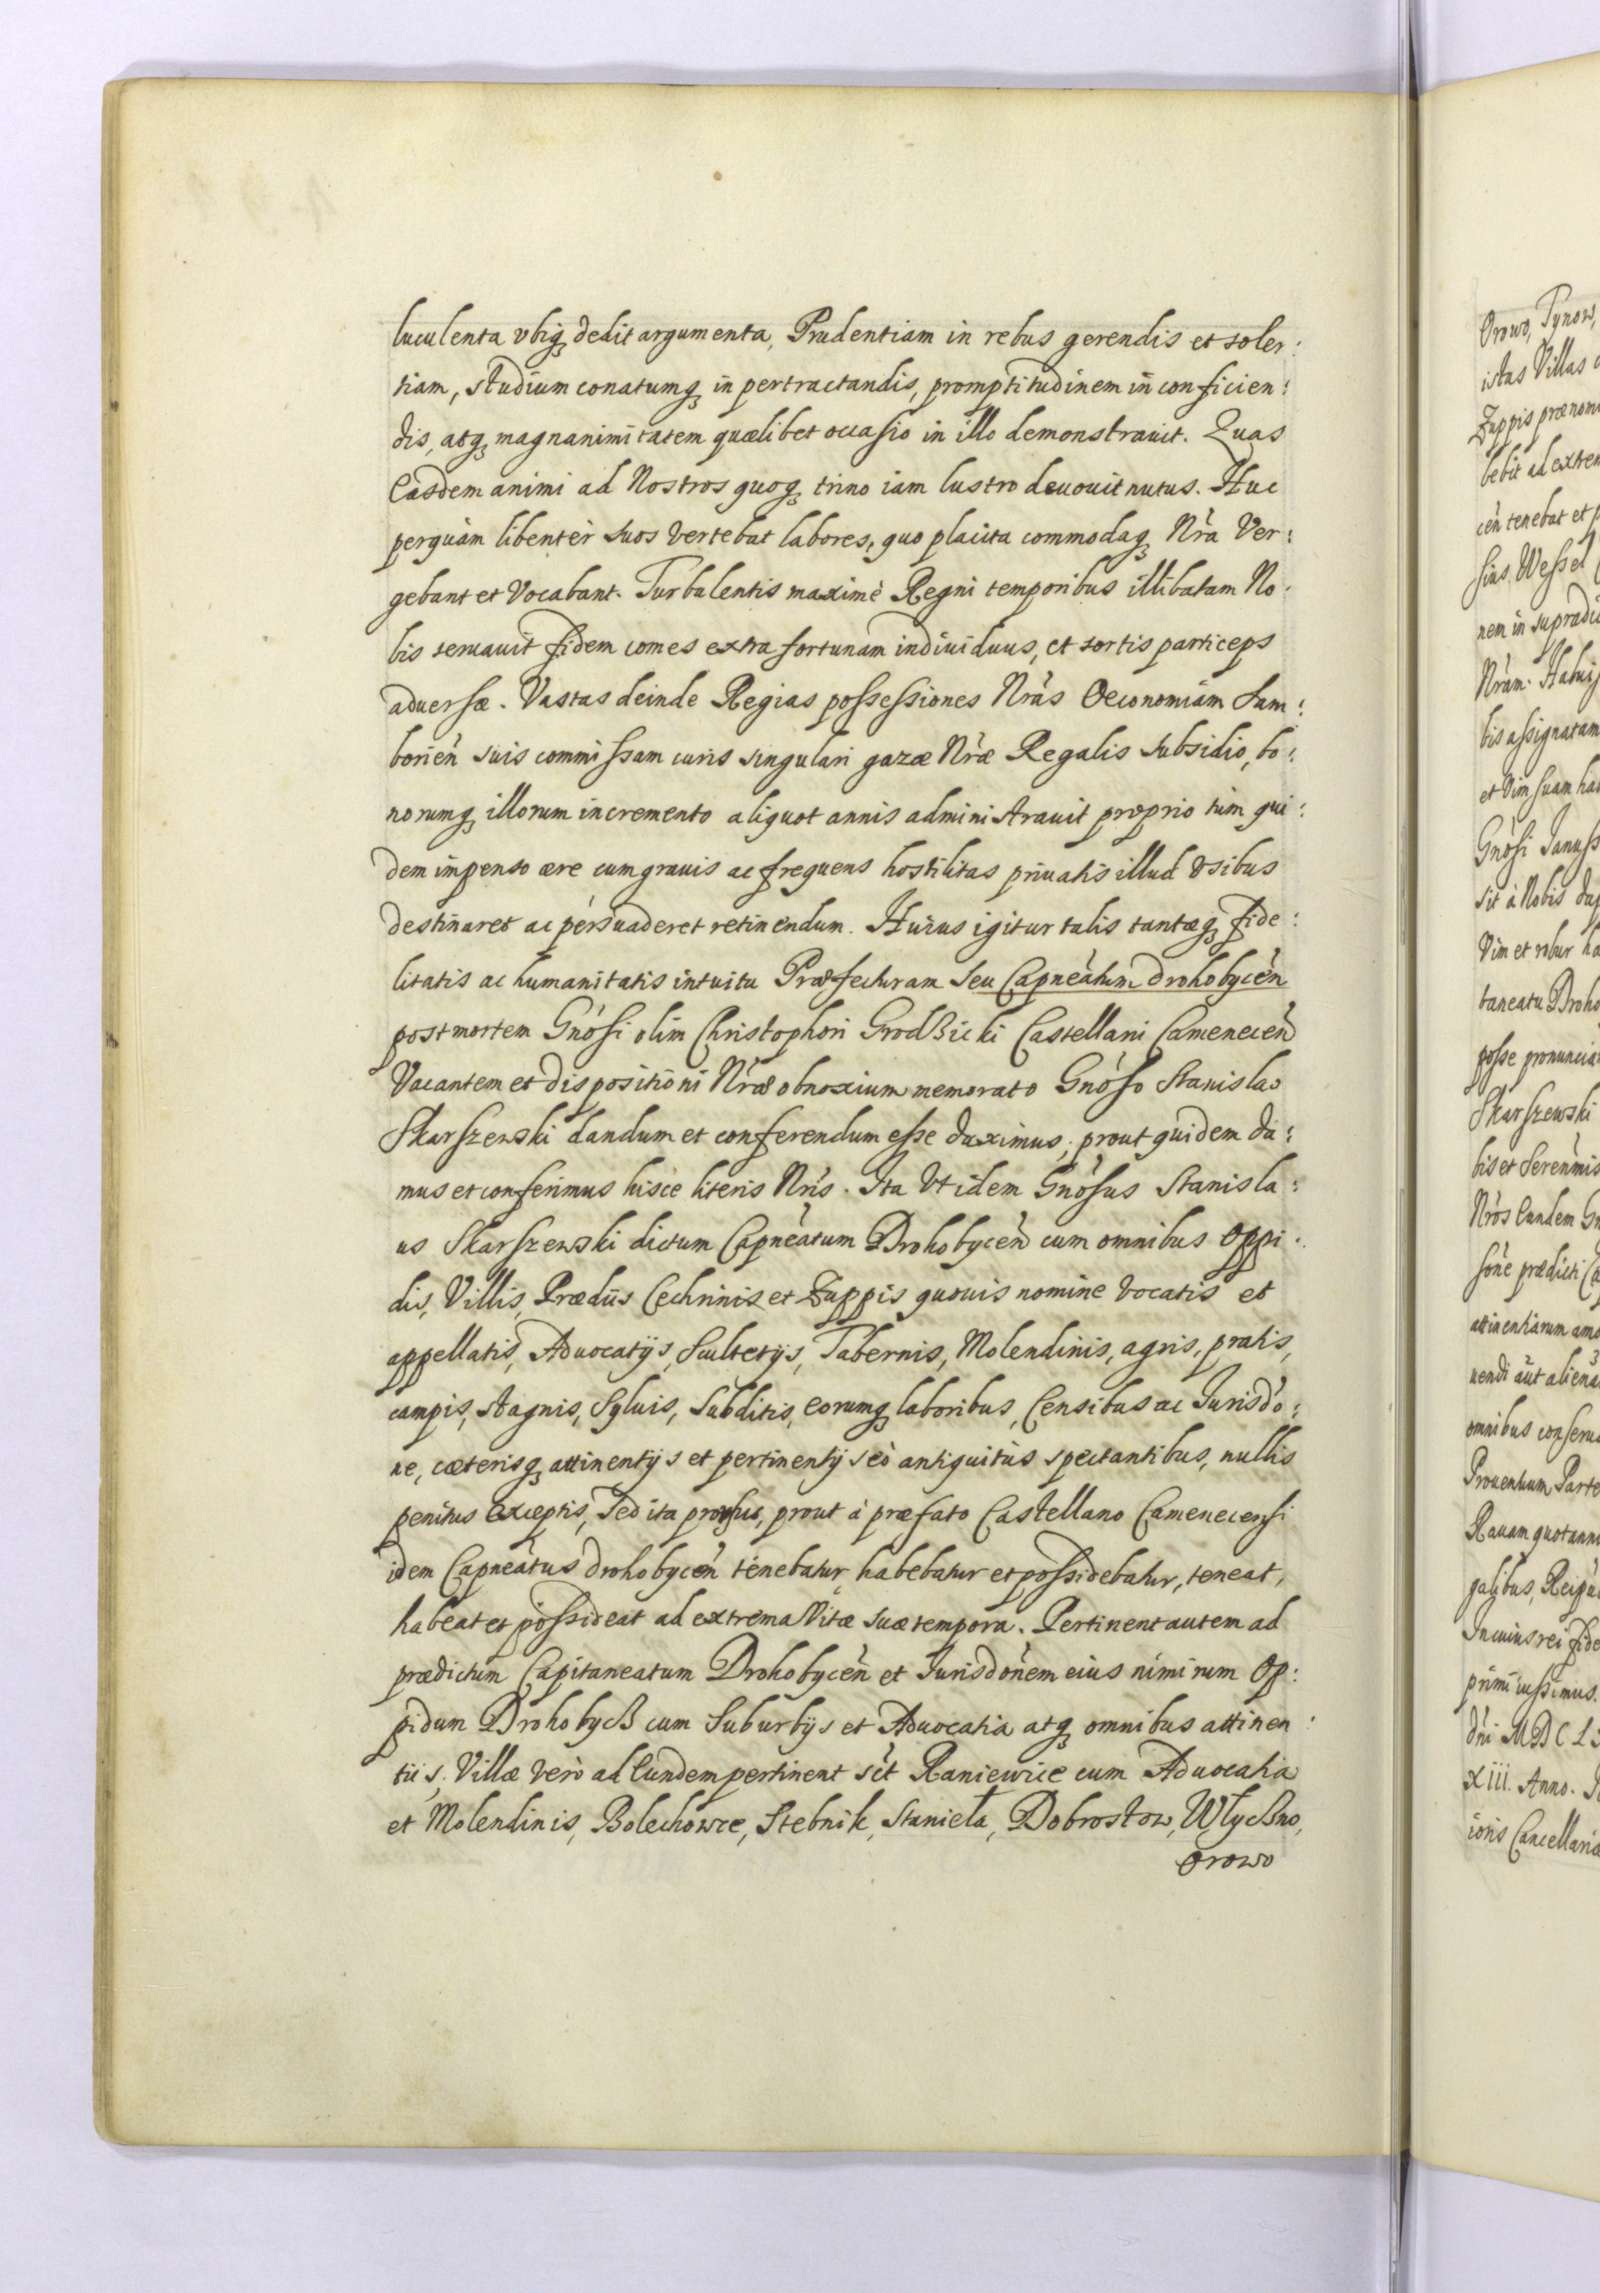 luculenta vbiq; dedit argumenta, Prudentiam in rebus gerendis et soler:
tiam, studium conatumq; in pertractandis, promptitudinem in conficien:
dis, atq; magnanimitatem quælibet occasio in illo demonstrauit. Quas
Easdem animi ad Nostros quoq; trino iam lustro deuouit nutus. Huc
perquàm libentèr suos vertebat labores, quo placita commodaq; Nr̃a Ver:
gebant et Vocabant. Turbulentis maximè Regni temporibus illibatam No:
bis seruauit fidem comes extra fortunam indiuiduus, et sortis particeps
aduersæ. Vastas deinde Regias possessiones Nr̃as Oeconomiam Sam:
borień suis commissam curis singulari gazæ Nr̃æ Regalis subsidio, bo:
norumq; illorum incremento aliquot annis administrauit proprio tùm qui:
dem impenso ære cum grauis ac frequens hostilitas priuatis illud vsibus
destinaret ac persuaderet retinendum. Huius igitur talis tantæq; fide:
litatis ac humanitatis intuitu Præfecturam seu Capneatum drohobyceń
post mortem Gnosi olim Christophori Grodßicki Castellani Cameneceń
Vacantem et dispositioni Nr̃æ obnoxium memorato Gnoso Stanislao
Skarszewski dandum et conferendum esse duximus, prout quidem da:
mus et conferimus hisce literis Nr̃is. Ita Vt idem Gnosus Stanisla:
us Skarszewski dictum Capneatum Drohobyceń cum omnibus Oppi:
dis, Villis, Prædiis Cechrinis et Zuppis quouis nomine vocatis et
appellatis, Aduocatijs, Scultetijs, Tabernis, Molendinis, agris, pratis,
campis, stagnis, Syluis, Subditis, eorumq; laboribus, Censibus ac Jurisdo:
ne, cæterisq; attinentijs et pertinentijs eò antiquitùs spectantibus, nullis
penitus exceptis, Sed ita prorsus, prout à præfato Castellano Camenecensi
idem Capneatus drohobyceń tenebatur habebatur et possidebatur, teneat,
habeat et possideat ad extrema Vitæ suæ tempora. Pertinent autem ad
prædictum Capitaneatum Drohobyceń et Jurisdonem eius nimirum Op:
pidum Drohobycß cum Suburbijs et Aduocatia atq; omnibus attinen:
tiis, Villæ verò ad Eundem pertinent sc̃t Raniewice cum Aduocatia
et Molendinis, Bolechowce, Stebnik, Stanieła, Dobrosłow, Włycßno,
Orowo